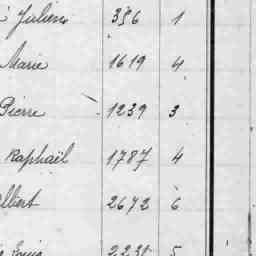 Julien 356 1
Marie 1619 4
Pierre 1239 3
Raphaël 1787 4
Albert 2672 6
Louis 2231 5